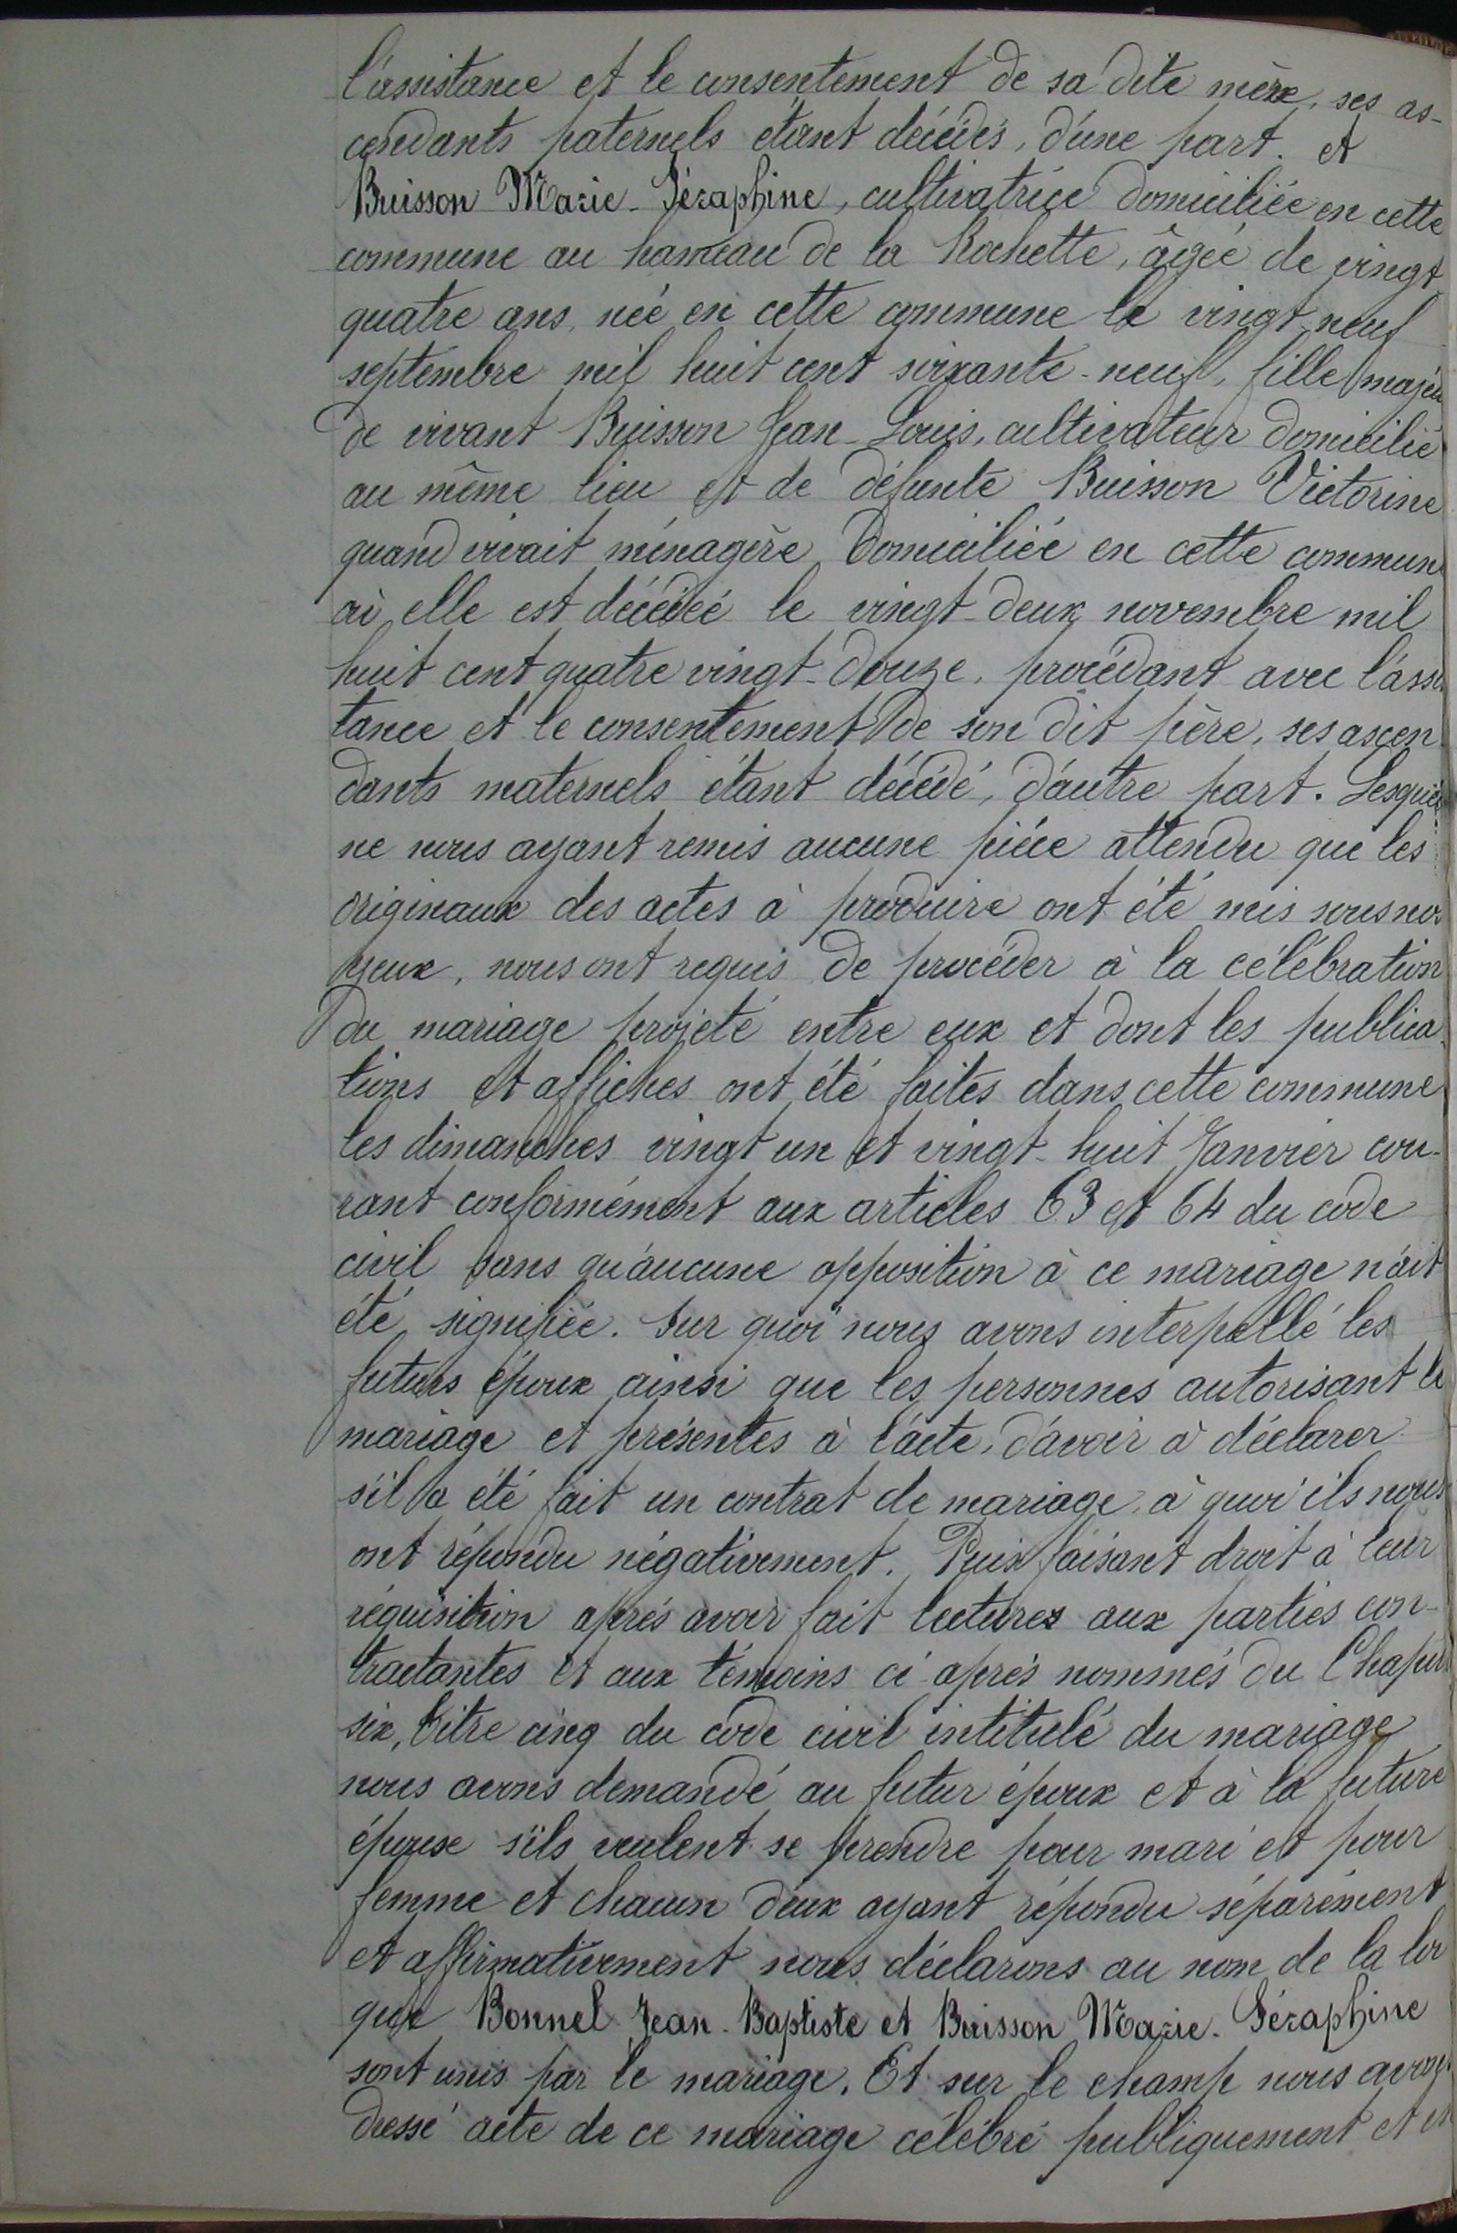 l'assistance et le consentement de sa dite mère, ses as-
cendants paternels étant décédés, d'une part. et
Buisson Marie-Séraphine, cultivatrice domiciliée en cette
commune au hameau de la Rochette, âgée de vingt
quatre ans, née en cette commune le vingt neuf
septembre mil huit cent soixante-neuf, fille majeu
de vivant Buisson Jean-Louis, cultivateur domicilié
au même lieu et de défunte Buisson Victorine
quand vivait ménagère domiciliée en cette commune
où elle est décédée le vingt-deux novembre mil
huit cent quatre vingt-douze, procédant avec l'assis
tance et le consentement de son dit père, ses ascen
dants maternels étant décédé, d'autre part. Lesquels
ne nous ayant remis aucune pièce attendu que les
originaux des actes à produire ont été mis sous nos
yeux, nous ont requis de procéder à la célébration
du mariage projeté entre eux et dont les publica
tions et affiches ont été faites dans cette commune
les dimanches vingt un et vingt-huit Janvier cou-
rant conformément aux articles 63 et 64 du code
civil sans qu'aucune opposition à ce mariage n'ait
été signifiée. Sur quoi nous avons interpellé les
futurs époux ainsi que les personnes autorisant le
mariage et présentes à l'acte, d'avoir à déclarer
s'il a été fait un contrat de mariage, à quoi ils nous
ont répondu négativement. Puis faisant droit à leur
réquisition après avoir fait lectures aux parties con-
tractantes et aux témoins ci-après nommés du Chapitre
six, titre cinq du code civil intitulé du mariage
nous avons demandé au futur époux et à la future
épouse s'ils veulent se prendre pour mari et pour
femme et chacun d'eux ayant répondu séparément
et affirmativement nous déclarons au nom de la loi
que Bonnel Jean-Baptiste et Buisson Marie-Séraphine
sont unis par le mariage. Et sur le champ nous avons
dressé acte de ce mariage célébré publiquement et